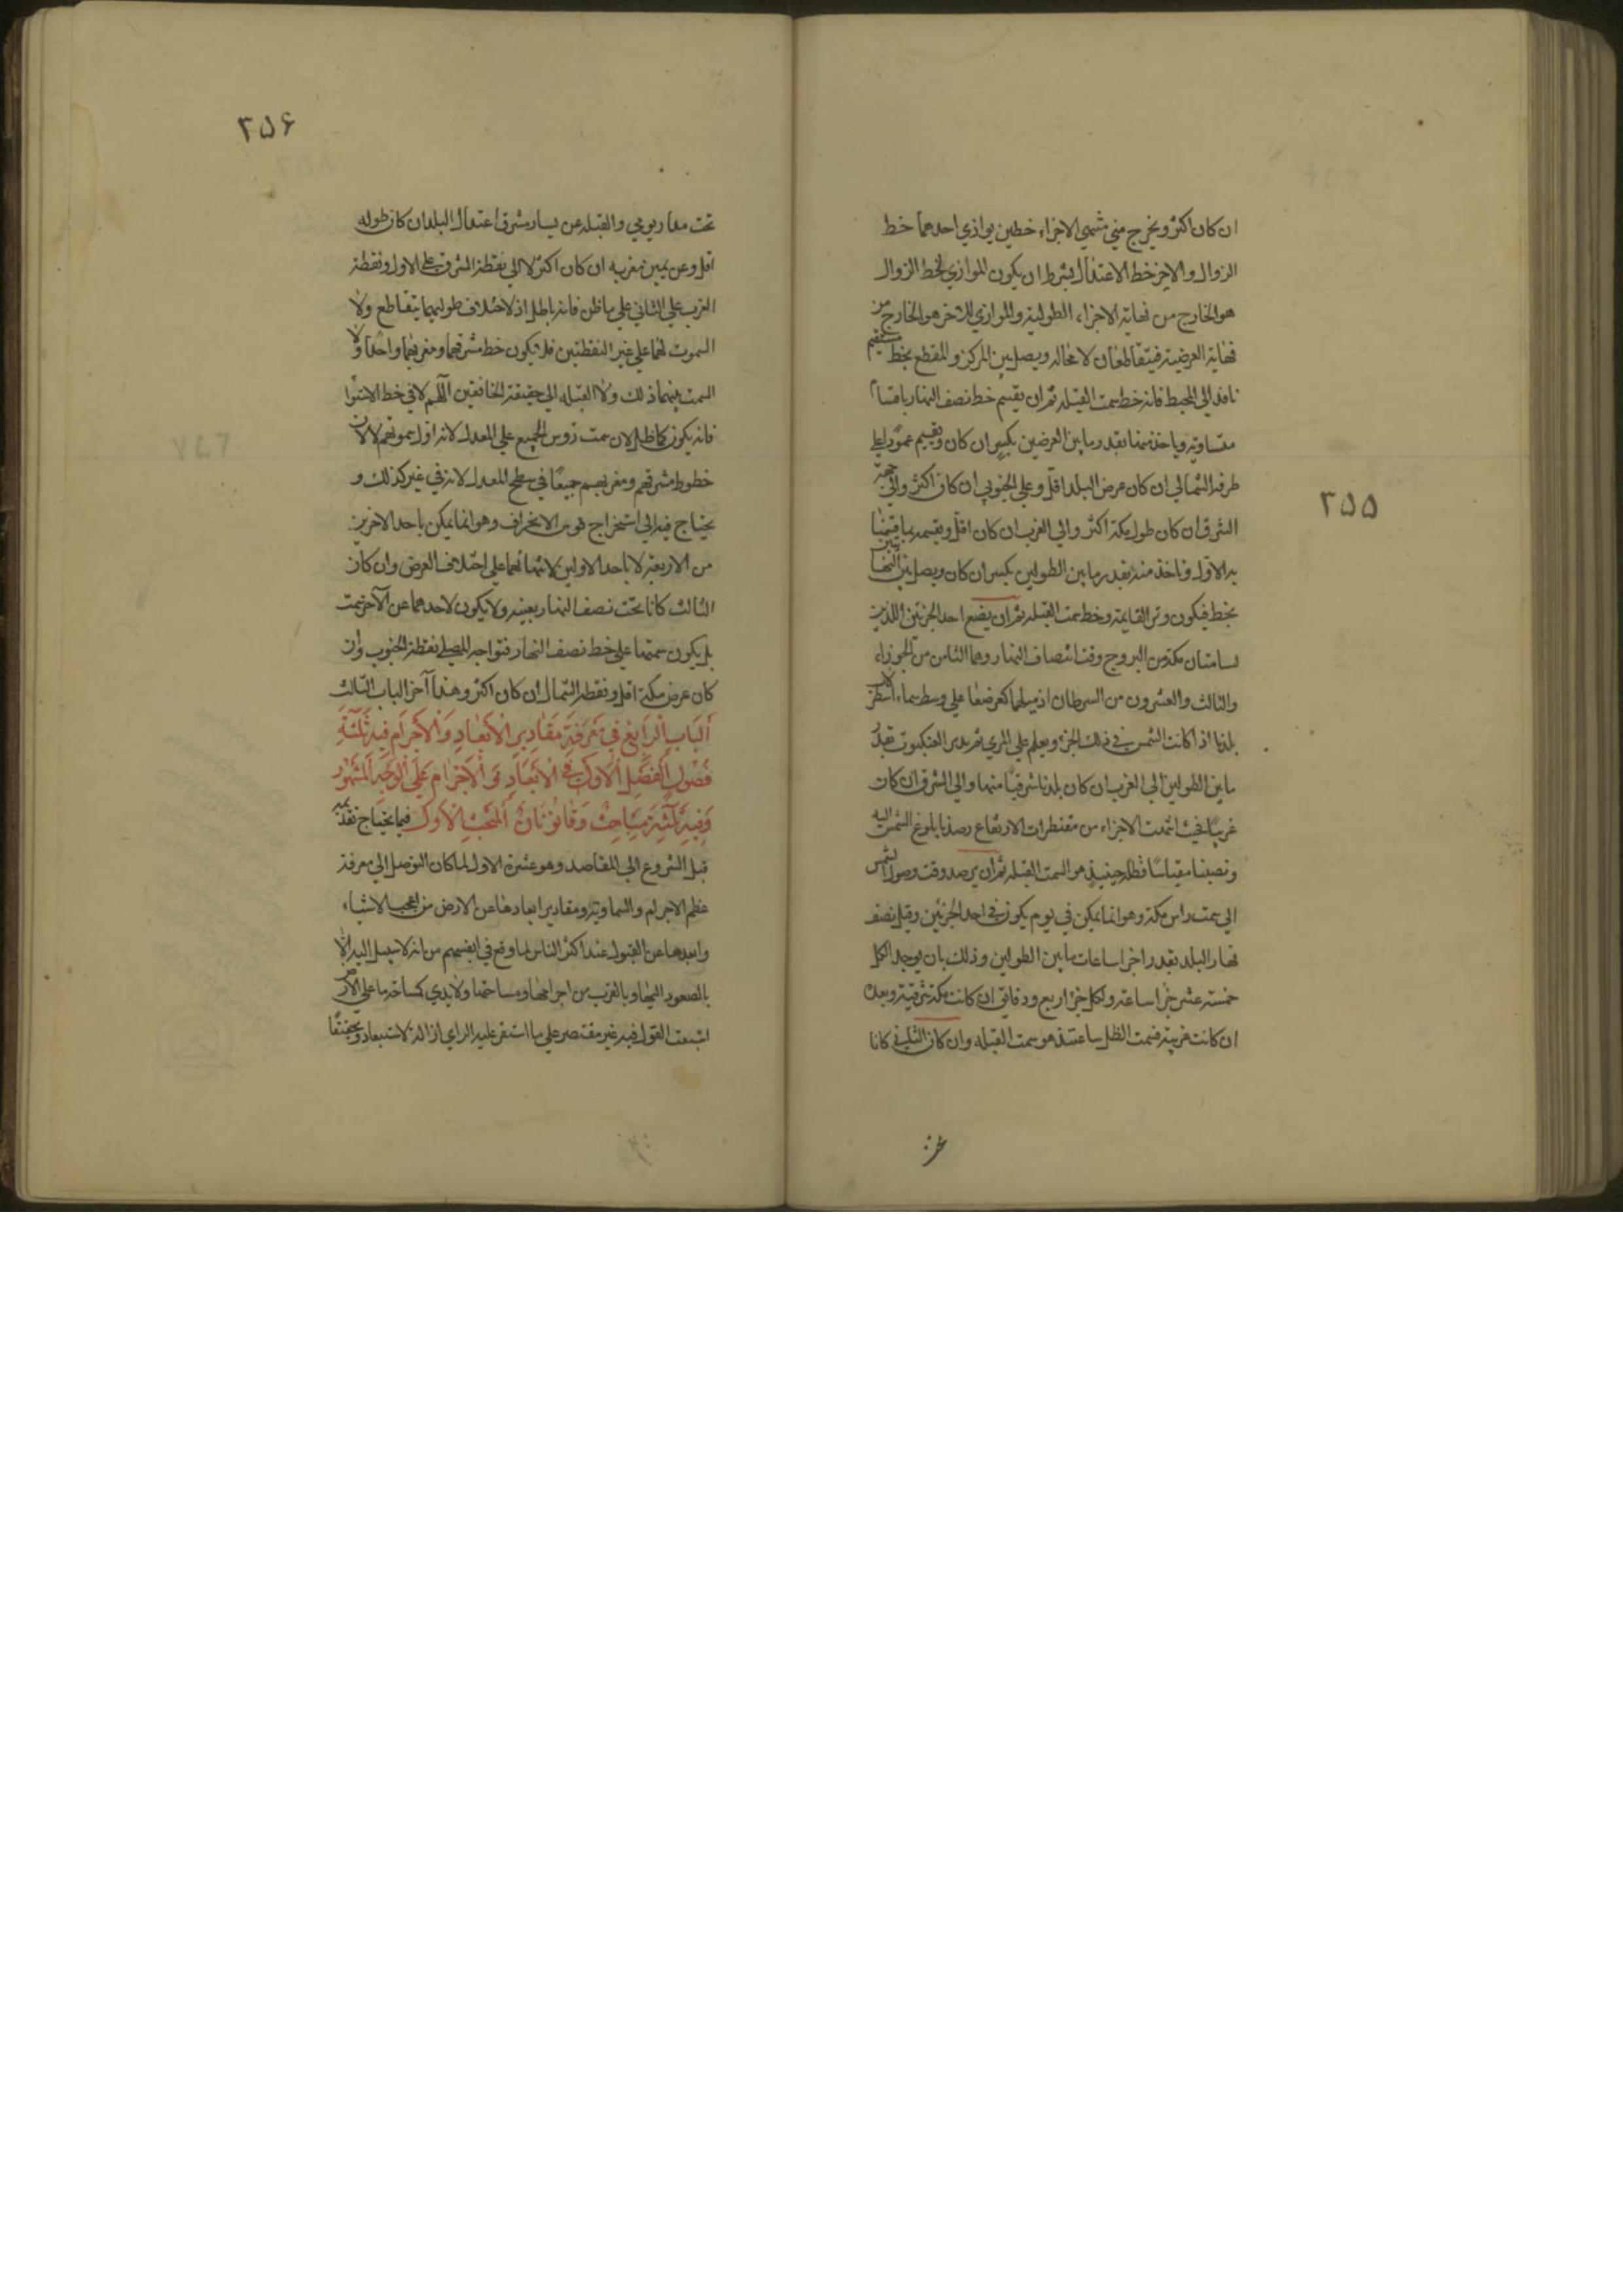 ٢٥٥
ان كان اكثر ويخرج من منتهي الاجزاء خطين يوازي احدهما خط
الزوال والاخر خط الاعتدال بشرط ان يكون الموازي لخط الزوال
هو الخارج من نهاية الاجزاء الطولية والموازي للاخر هو الخارج من
نهاية العرضية فيتقاطعان لا محالة ويصل بين المركز والمقطع بخط مستقيم
نافذ الي المحيط فانه خط سمت القبلة ثم ان يقسم خط نصف النهار باقسام
متساوية وياخذ منها بقدر ما بين العرضين بكسر ان كان ويقيم عمودا علي
طرفه الشمالي ان كان عرض البلد اقل وعلي الجنوبي ان كان اكثر والي جهة
الشرق ان كان طول مكة اكثر والي الغرب ان كان اقل ويقسمه بما قسمنا
به الاول وناخذ منه بقدر ما بين الطولين بكسر ان كان ويصل بين
بخط فيكون وتر القايمة وخط سمت القبلة ثم ان يضع احد الجزئين اللذين
يسامتان مكة من البروج وقت انتصاف النهار وهما الثامن من الجوزاء
والثالث والعشرون من السرطان اذ ميلهما كعرضها علي وسط سماء اسطرلاب
بلدنا اذا كانت الشمس في ذلك الجزء ويعلم علي المري ثم يدير العنكبوت بقدر
ما بين الطولين الي الغرب ان كان بلدنا شرقيا منها والي الشرق ان كان
غربيا فحيث انتهت الاجزاء من مقنطرات الارتفاع رصدنا بلوغ الشمس اليه
ونصبنا مقياسا فظله حينيذ هو السمت القبلة ثم ان يرصد وقت وصول الشمس
الي سمت راس مكة وهو انما يمكن في يوم يكون في احد الجزئين وقبل نصف
نهار البلد بقدر اخر ساعات ما بين الطولين وذلك بان يوجد لكل
خمسة عشر جزا ساعة ولكل جزء اربع دقائق ان كانت مكة شرقية وبعده
ان كانت غربية فسمت الظل ساعتئذ هو سمت القبلة وان كان الثاني كانا
٢٥۶
تحت مدار يومي والقبلة عن يسار مشرق اعتدال البلد ان كان طوله
اقل وعن يمين مغربه ان كان اكثر لا الي نقطة الشرق علي الاول ونقطة
الغرب علي الثاني علي ما ظن فانه باطل اذ لاختلاف طوليهما يتقاطع ولا
السموت لهما علي غير النقطتين فلا يكون خط مشرقهما ومغربهما واحدا ولا
السمت بينهما ذلك ولا القبلة الي حقيقة الخافقين اللهم لا في خط الاستوا
فانه يكون كما ظل لان سمت رؤس الجميع علي المعدل لانه اول سموتهم لا لان
خطوط مشرقهم ومغربهم جميعا في سطح المعدل لانه في غير كذلك و
يحتاج فيه الي استخراج قوس الانحراف وهو انما يمكن باحد الاخرين
من الاربعة لا باحد الاولين لابتنائهما علي اختلاف العرض وان كان
الثالث كانا تحت نصف النهار بعينه ولا يكون لاحدهما عن الآخر سمت
بل يكون سمتهما علي خط نصف النهار فتواجه المصلي نقطة الجنوب وان
كان عرض مكة اقل ونقطة الشمال ان كان اكثر وهذا آخر الباب الثالث
اَلبَاب الرَابِع في مَعرِفَةِ مَقَادِير الاَبعَادِ وَالاَجرَام فيه ثَلثَةُ
فُصُول اَلفَصل الاَول في الاَبعَادِ وَ الاَجرَام عَلَي الوَجهِ المَشهُور
وَفيه ثَلثَة مَبَاحِث وَقَانونَان المَبحَث الاَول فيما يحتاج تقدمه
قبل الشروع الي المقاصد وهو عشرة الاول لما كان التوصل الي معرفة
عظم الاجرام والسماوية ومقادير ابعادها عن الارض من اعجب الاشياء
وابعدها عن القبول عند اكثر الناس لما وقع في انفسهم من انه لا سبيل اليه الا
بالصعود اليها وبالقرب من اجرامها ومساحتها ولا يدي كمساحة ما علي الارض
اشبعت القول فيه غير مقتصر علي ما استقر عليه الراي ازالة لاستبعاد وتحقيقا